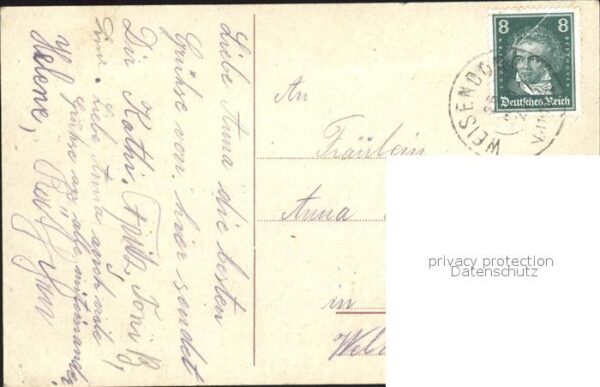 Liebe Anna die besten
Grüße von hier sendet
Dir Kathi, Fritz, Toni B,
Liebe Anna auch viele
Grüße an alle miteinander
Helene,
An
Fräulein
Anna
in
8 8
BEETHOVEN
Deutsches Reich
WEISENDO
privacy protection
Datenschutz